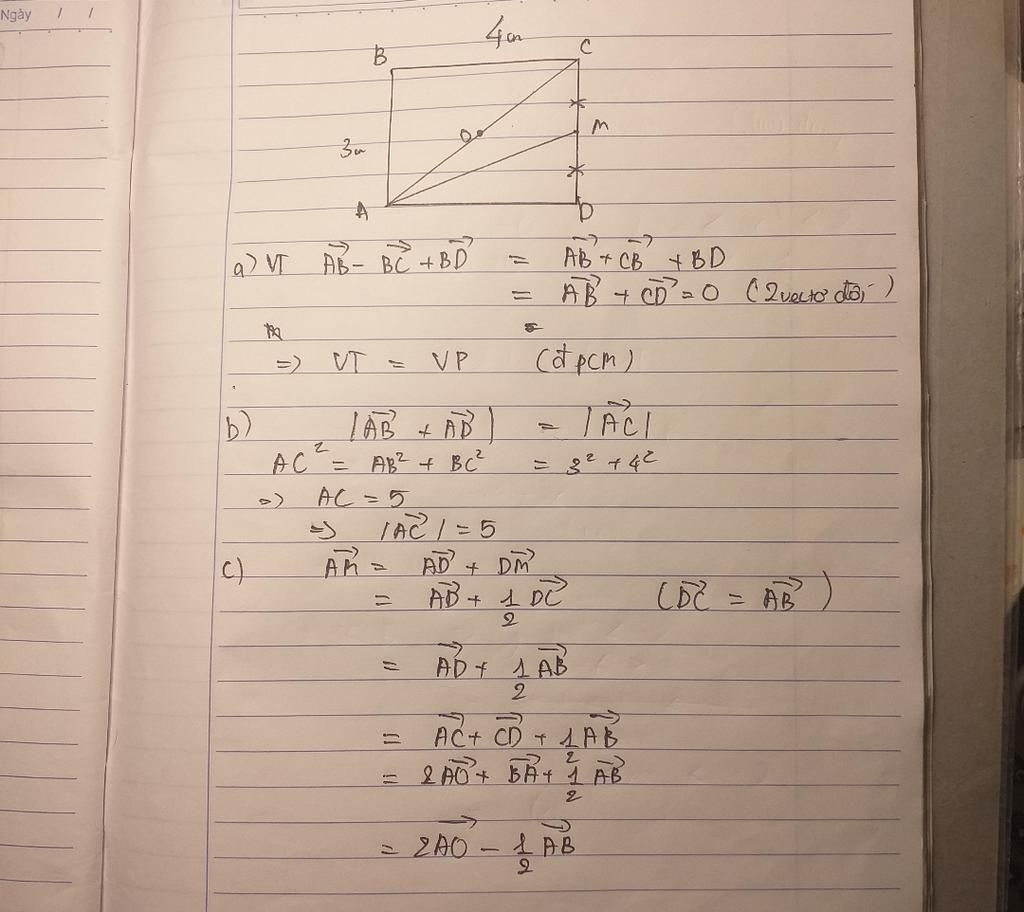 Ngày / /
4cm
B C
O M
3cm
A D
a) VT AB→ - BC→ + BD→ = AB→ + CB→ + BD
= AB→ + CD→ = 0 (2 vectơ đối)
=
=) VT = VP (đpcm)
b) |AB→ + AD→| = |AC→|
AC² = AB² + BC² = 3² + 4²
=) AC = 5
=) |AC→| = 5
c) AM→ = AD→ + DM→
= AD→ + 1/2 DC→ (DC→ = AB→)
= AD→ + 1/2 AB→
= AC→ + CD→ + 1/2 AB→
= 2AO→ + BA→ + 1/2 AB→
= 2AO→ - 1/2 AB→